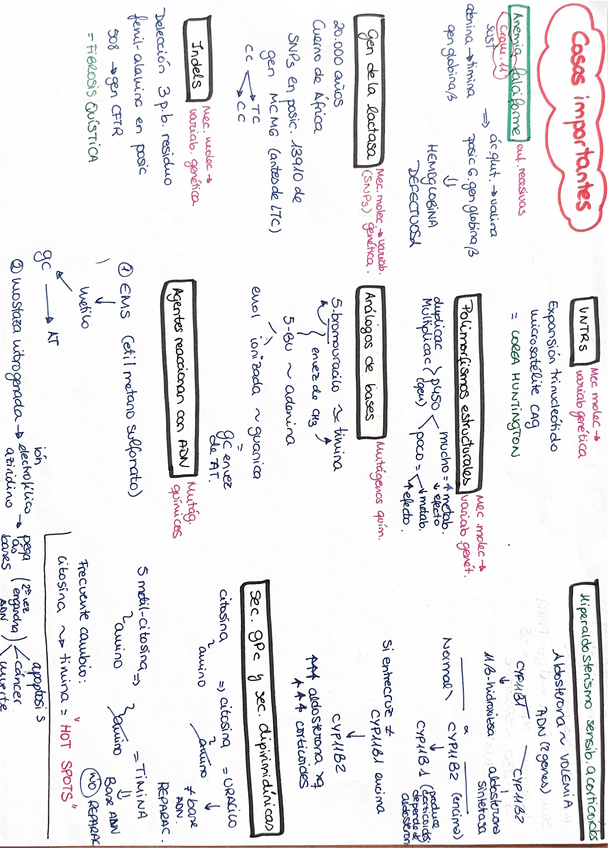 Cosas importantes
Anemia falciforme aut. recesivas
Crom. 11
sust
adenina → timina => ác. glut. → valina
gen globina β posic 6. gen globina β
⇓
HEMOGLOBINA
DEFECTUOSA
Gen de la lactasa Mec. molec → variab.
(SNPs) genética.
20.000 años
Cuerno de África
SNPs en posic. 13910 de
gen MCM6 (antes de LTC)
TC
CC
CC
Indels Mec. molec →
variab. genética
Deleción 3 p.b. residuo
fenil-alanina en posic
508 → gen CFTR
= FIBROSIS QUÍSTICA
VNTRs Mec molec →
variab genética
Expansión trinucleótido
microsatélite CAG
= COREA HUNTINGTON
Polimorfismos estructurales Mec. molec →
variab. genét.
duplicac
Multiplicac > p450 mucho = ↑ metab.
(gen) ↓ efecto
poco = ↓ metab.
↑ efecto.
Análogos de bases Mutágenos quím.
5-bromouracilo ~ timina
en vez de CH3
5-BU ~ adenina
enol ionizada ~ guanina
=
GC en vez
de AT.
Agentes reaccionan con ADN Mutág.
químicos
① EMS (etil metano sulfonato)
↓
metilo
GC → AT
② Mostaza nitrogenada → ión
electrofílico
aziridino → pega
las
bases (2ª vez
engancha
ADN) apoptosis
cáncer
muerte
Hiperaldosterismo sensib. a corticoides
Aldosterona ~ VOLEMIA
ADN (2 genes)
CYP11B1 — CYP11B2
↓ ↓
11 β-hidroxilasa aldosterona
sintetasa
Normal CYP11B2 (encima)
a
CYP11B1 (corticoides
produce
depende de
aldosteron
Si entrecruz ≠
CYP11B1 encima
↓
CYP11B2
↑↑↑ aldosterona xq
↑↑↑ corticoides
sec. GPC y sec. dipirimidínicas
citosina => citosina = URACILO
amino amino ↓
≠ base
ADN.
REPARAC.
5 metil-citosina => = TIMINA
amino amino ⇓
Base ADN
NO REPARAC.
Frecuente cambio:
citosina ~> timina = "HOT SPOTS"